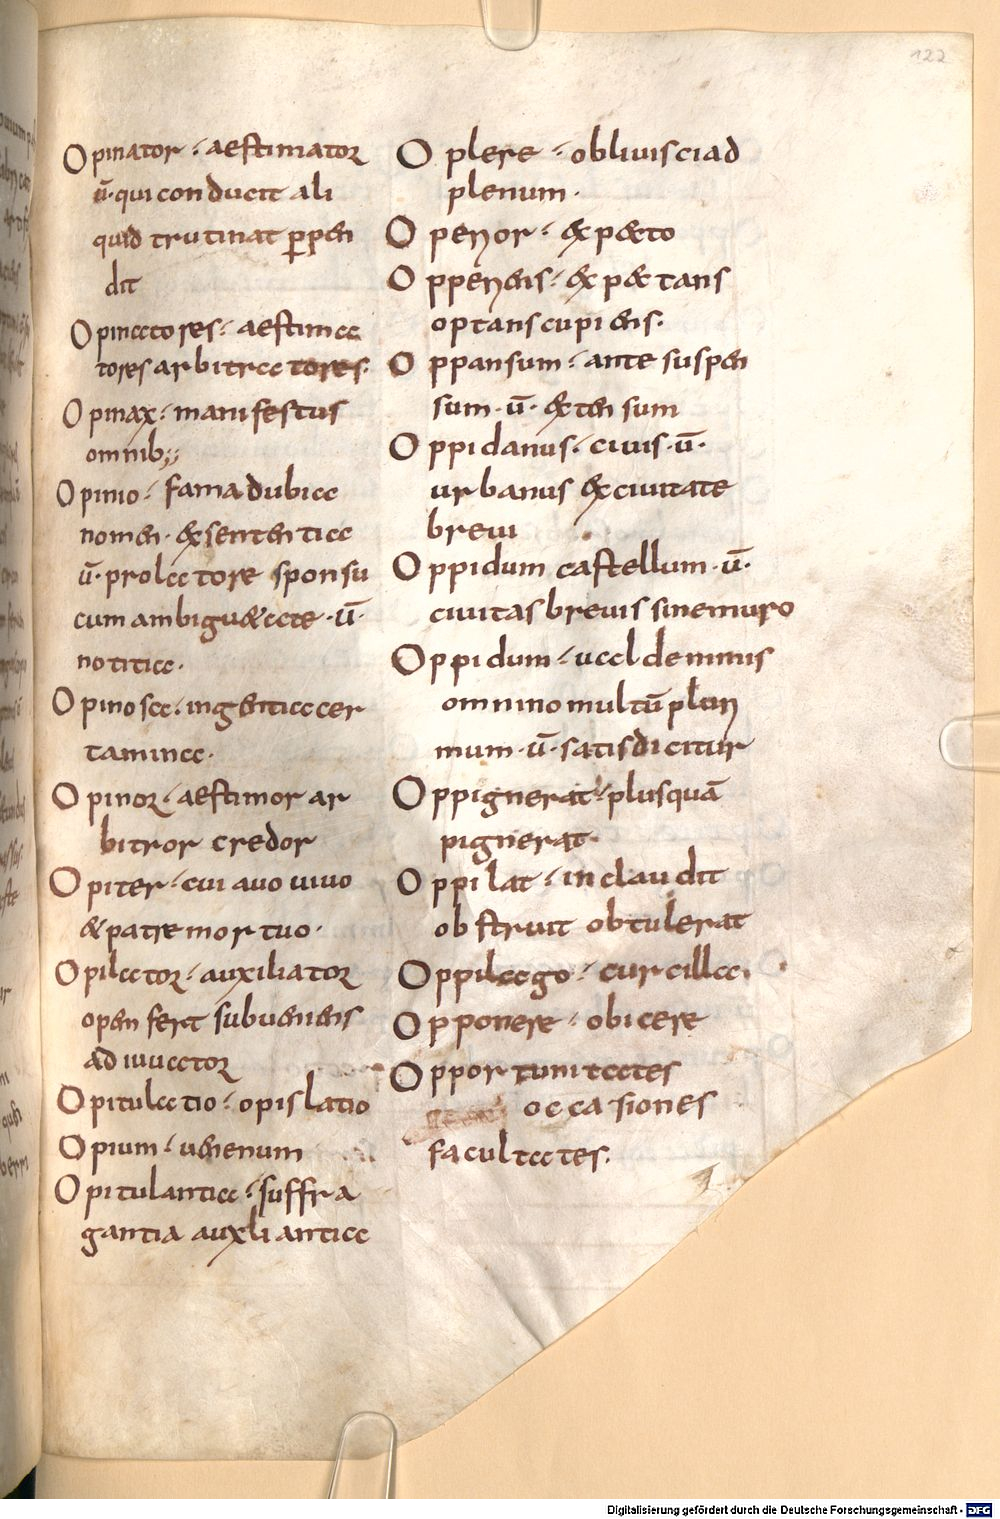 122
Opinator · aestimator
ū · qui conducit ali
quid trutinat ꝑpen
dit
Opinatores · aestima
tores arbitratores ·
Opinax · manifestus
omnib;
Opinio · fama dubia
nomen · &sententia
ū · prolatore sponsu
cum ambigu&ate · ū ·
notitia ·
Opinosa · ingentia cer
tamina ·
Opinor · aestimor ar
bitror credor
Opiter · cui auo uiuo
& patre mortuo ·
Opilator · auxiliator
open fert subueniens
adiuuator
Opitulatio · opislatio
Opium · uenenum
Opitulantia · suffra
gantia auxliantia
Oplere · obliuisci ad
plenum ·
Operior · exp&to
Opperiens · exp&tans
optans cupiens ·
Oppansum · ante suspen
sum · ū · extensum
Oppidanus · ciuis · ū ·
urbanus ex ciuitate
breui
Oppidum castellum · ū ·
ciuitas breuis sine muro
Oppidum · ualde nimis
omnino multū pleri
mum · ū · satis dicitur
Oppignerat · plusquā
pignerat ·
Oppilat · in claudit
obstruit obtulerat
Oppilago · curcilla ·
Opponere · obicere
Opportunitates
occasiones
facultates ·
Digitalisierung gefördert durch die Deutsche Forschungsgemeinschaft - DFG